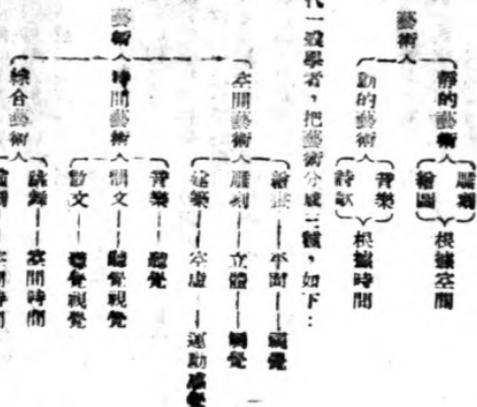 藝術
靜的藝術
雕刻
繪圖
根據空間
動的藝術
音樂
詩歌
根據時間
代一般學者，把藝術分成三種，如下：
藝術
空間藝術
繪畫 平面 視覺
雕刻 立體 觸覺
建築 空虛 運動感覺
時間藝術
音樂 聽覺
韻文 聽覺視覺
散文 聽覺視覺
綜合藝術
跳舞 空間時間
空間時間